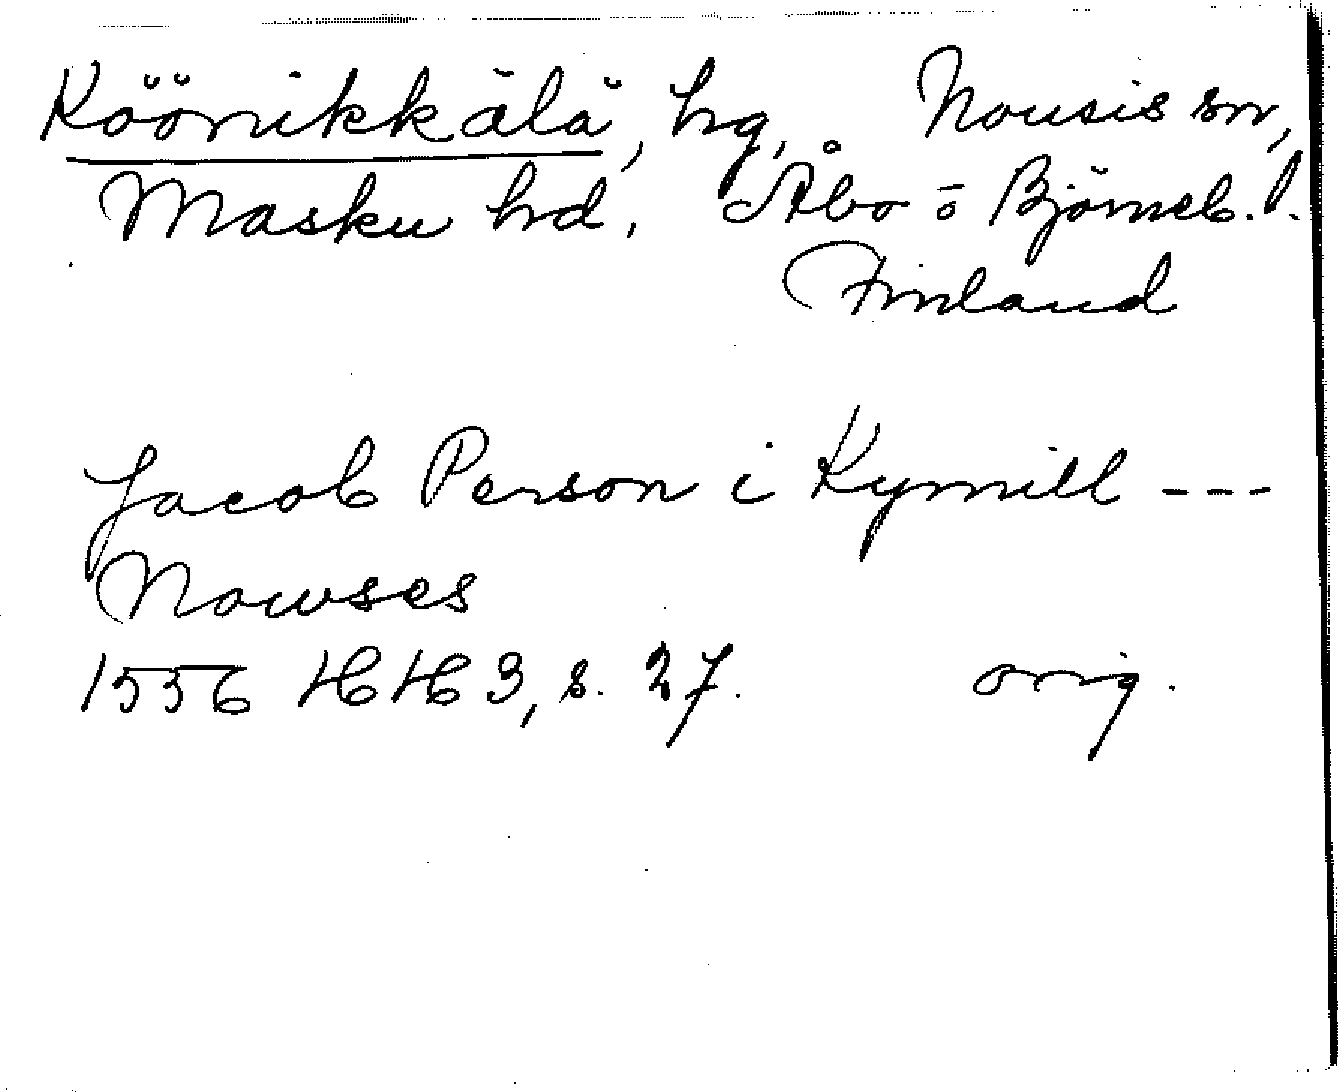 Köönikkälä, hg, Nousis sn,
Masku hd, Åbo o Björneb. l.
Finland
Jacob Person i Kymill ---
Nowses
1556 HH 3, s. 27. orig.